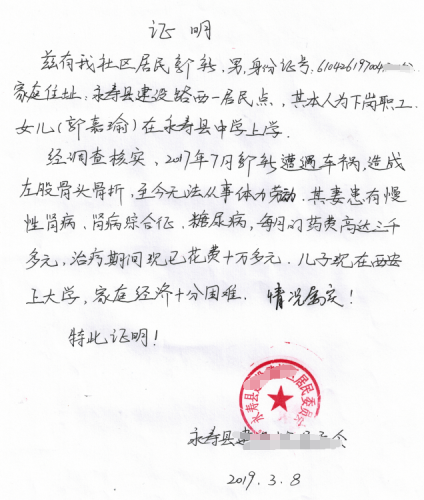 证明
兹有我社区居民郭新,男,身份证号:610426197004
家庭住址:永寿县建设路西一居民点,其本人为下岗职工.
女儿(郭嘉瑜)在永寿县中学上学.
经调查核实,2017年7月郭新遭遇车祸,造成
左股骨头骨折,至今无法从事体力劳动.其妻患有慢
性肾病、肾病综合征、糖尿病,每月的药费高达三千
多元,治疗期间现已花费十万多元.儿子现在西安
上大学,家庭经济十分困难. 情况属实!
特此证明!
永寿县 居民委员会
永寿县建
2019.3.8